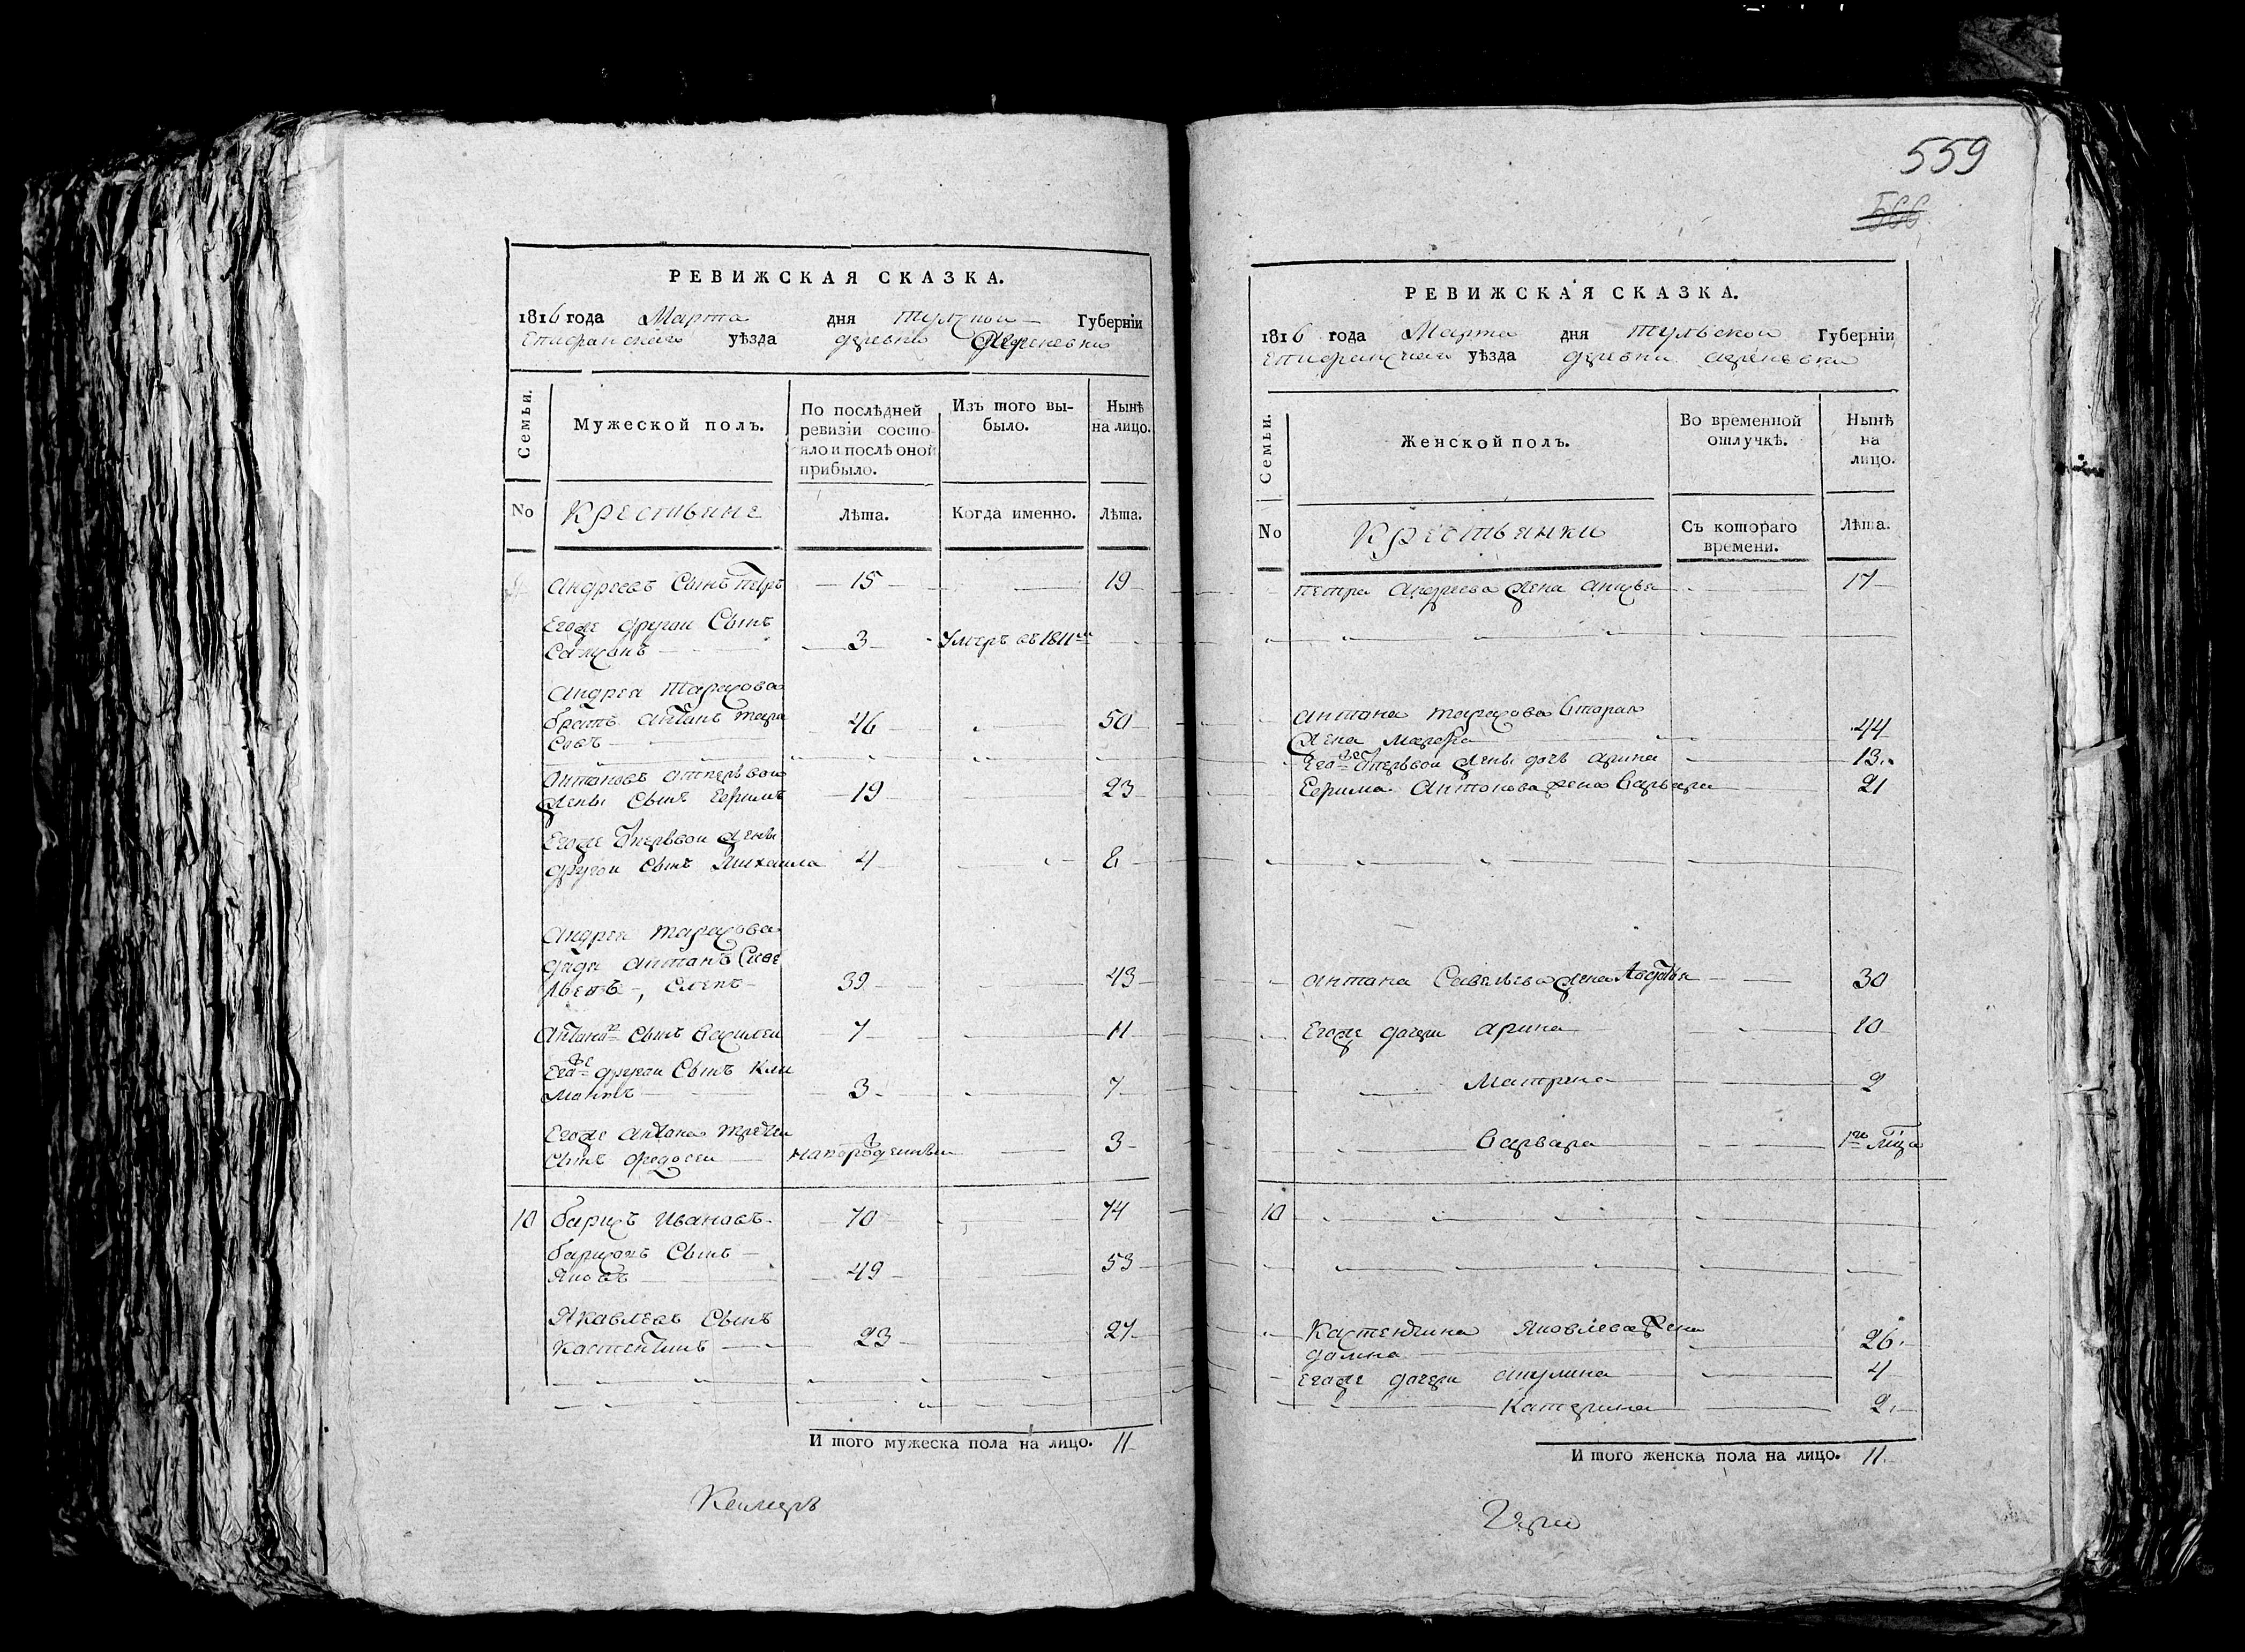 559
566
РЕВИЖСКАЯ СКАЗКА.
1816 года Марта дня Тульской Губернїи
Епифанскаго уѣзда деревни
Семьи.
Мужеской полъ.
По послѣдней ревизїи состо-
яло и послѣ оной прибыло.
Изъ того вы-
было.
Нынѣ на лицо.
No
Крестьяне
Лѣта.
Когда именно.
Лѣта.
Андреевъ Сынъ Петръ 15 19
Егоже другои Сынъ
Самсонъ 3 Умеръ въ 1811м
Андрея Тарасова
братъ Антанъ Тара
совъ 46 50
Антоновъ отпервои
жены Сынъ Ефимъ 19 23
Егоже отпервои жены
другои Сынъ Михаила 4 8
Андрея Тарасова
дядя Антанъ Саве
льевъ, слепъ 39 43
Антона Сынъ Василеи 7 11
Егоже другои Сынъ Кли
мантъ 3 7
Егоже Антона третеи
Сынъ Федосеи напорожденныи 3
10 Барисъ Ивановъ 70 74
Барисовъ Сынъ
Яковъ 49 53
Яковлевъ Сынъ
Костентинъ 23 27
И того мужеска пола на лицо. 11
РЕВИЖСКАЯ СКАЗКА.
1816 года Марта дня Тульской Губернїи
Епифанскаго уѣзда деревни
Семьи.
Женской полъ.
Во временной
отлучкѣ.
Нынѣ
на
лицо.
No
Крестьянки
Съ котораго
времени.
Лѣта.
Петра Андреева жена 17
Антона Тарасова втарая
жена Марфа 44
Егоже отпервои жены дочь Арина 13
Ефима Антонова жена Варвара 21
Антона Савельева жена Авдотья 30
Егоже дочери Арина 10
Матрена 2
Варвара 1го мца
10
Костентина Яковлева жена
Домна 26
Егоже дочери Акулина 4
Катерина 2
И того женска пола на лицо. 11